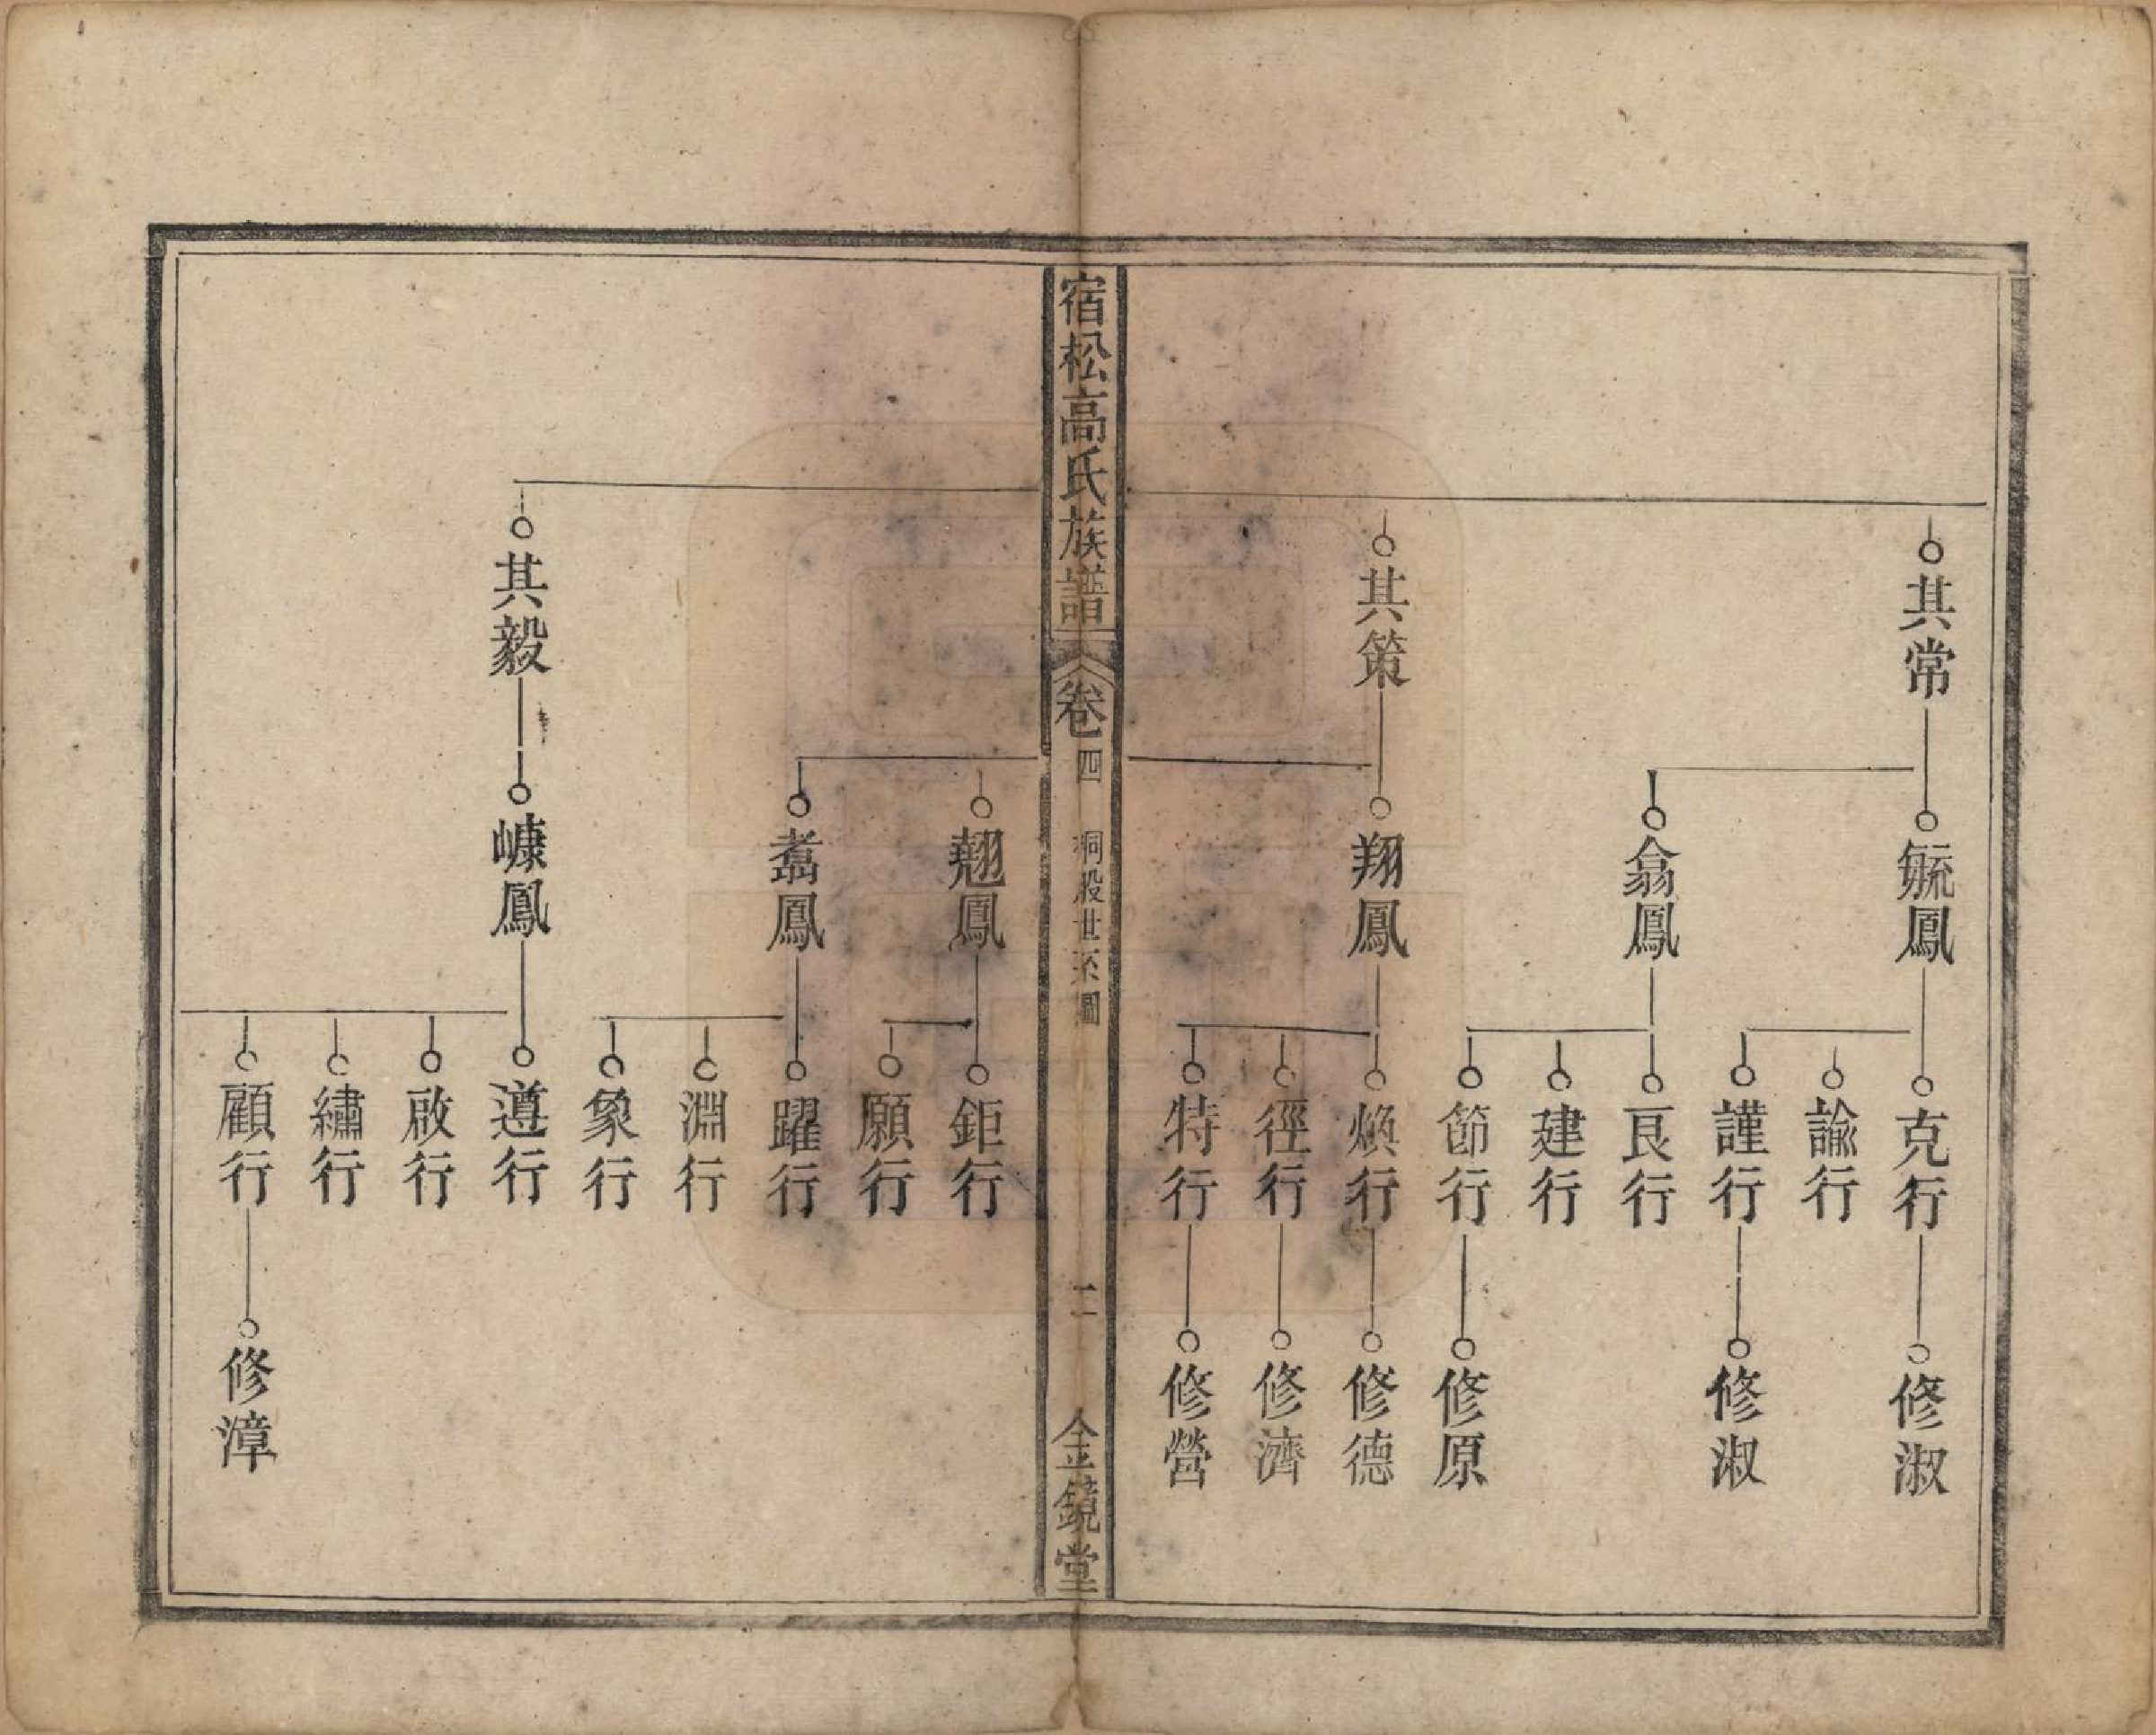 其常
毓鳳
克行
修淑
諭行
謹行
修淑
翕鳳
艮行
建行
節行
修原
其策
翔鳳
煥行
修德
徑行
修濟
特行
修營
宿松高氏族譜
卷四
桐股世系圖
二
金鏡堂
翹鳳
鉅行
願行
翥鳳
躍行
淵行
象行
其毅
㠊鳳
遵行
啟行
繡行
顧行
修漳